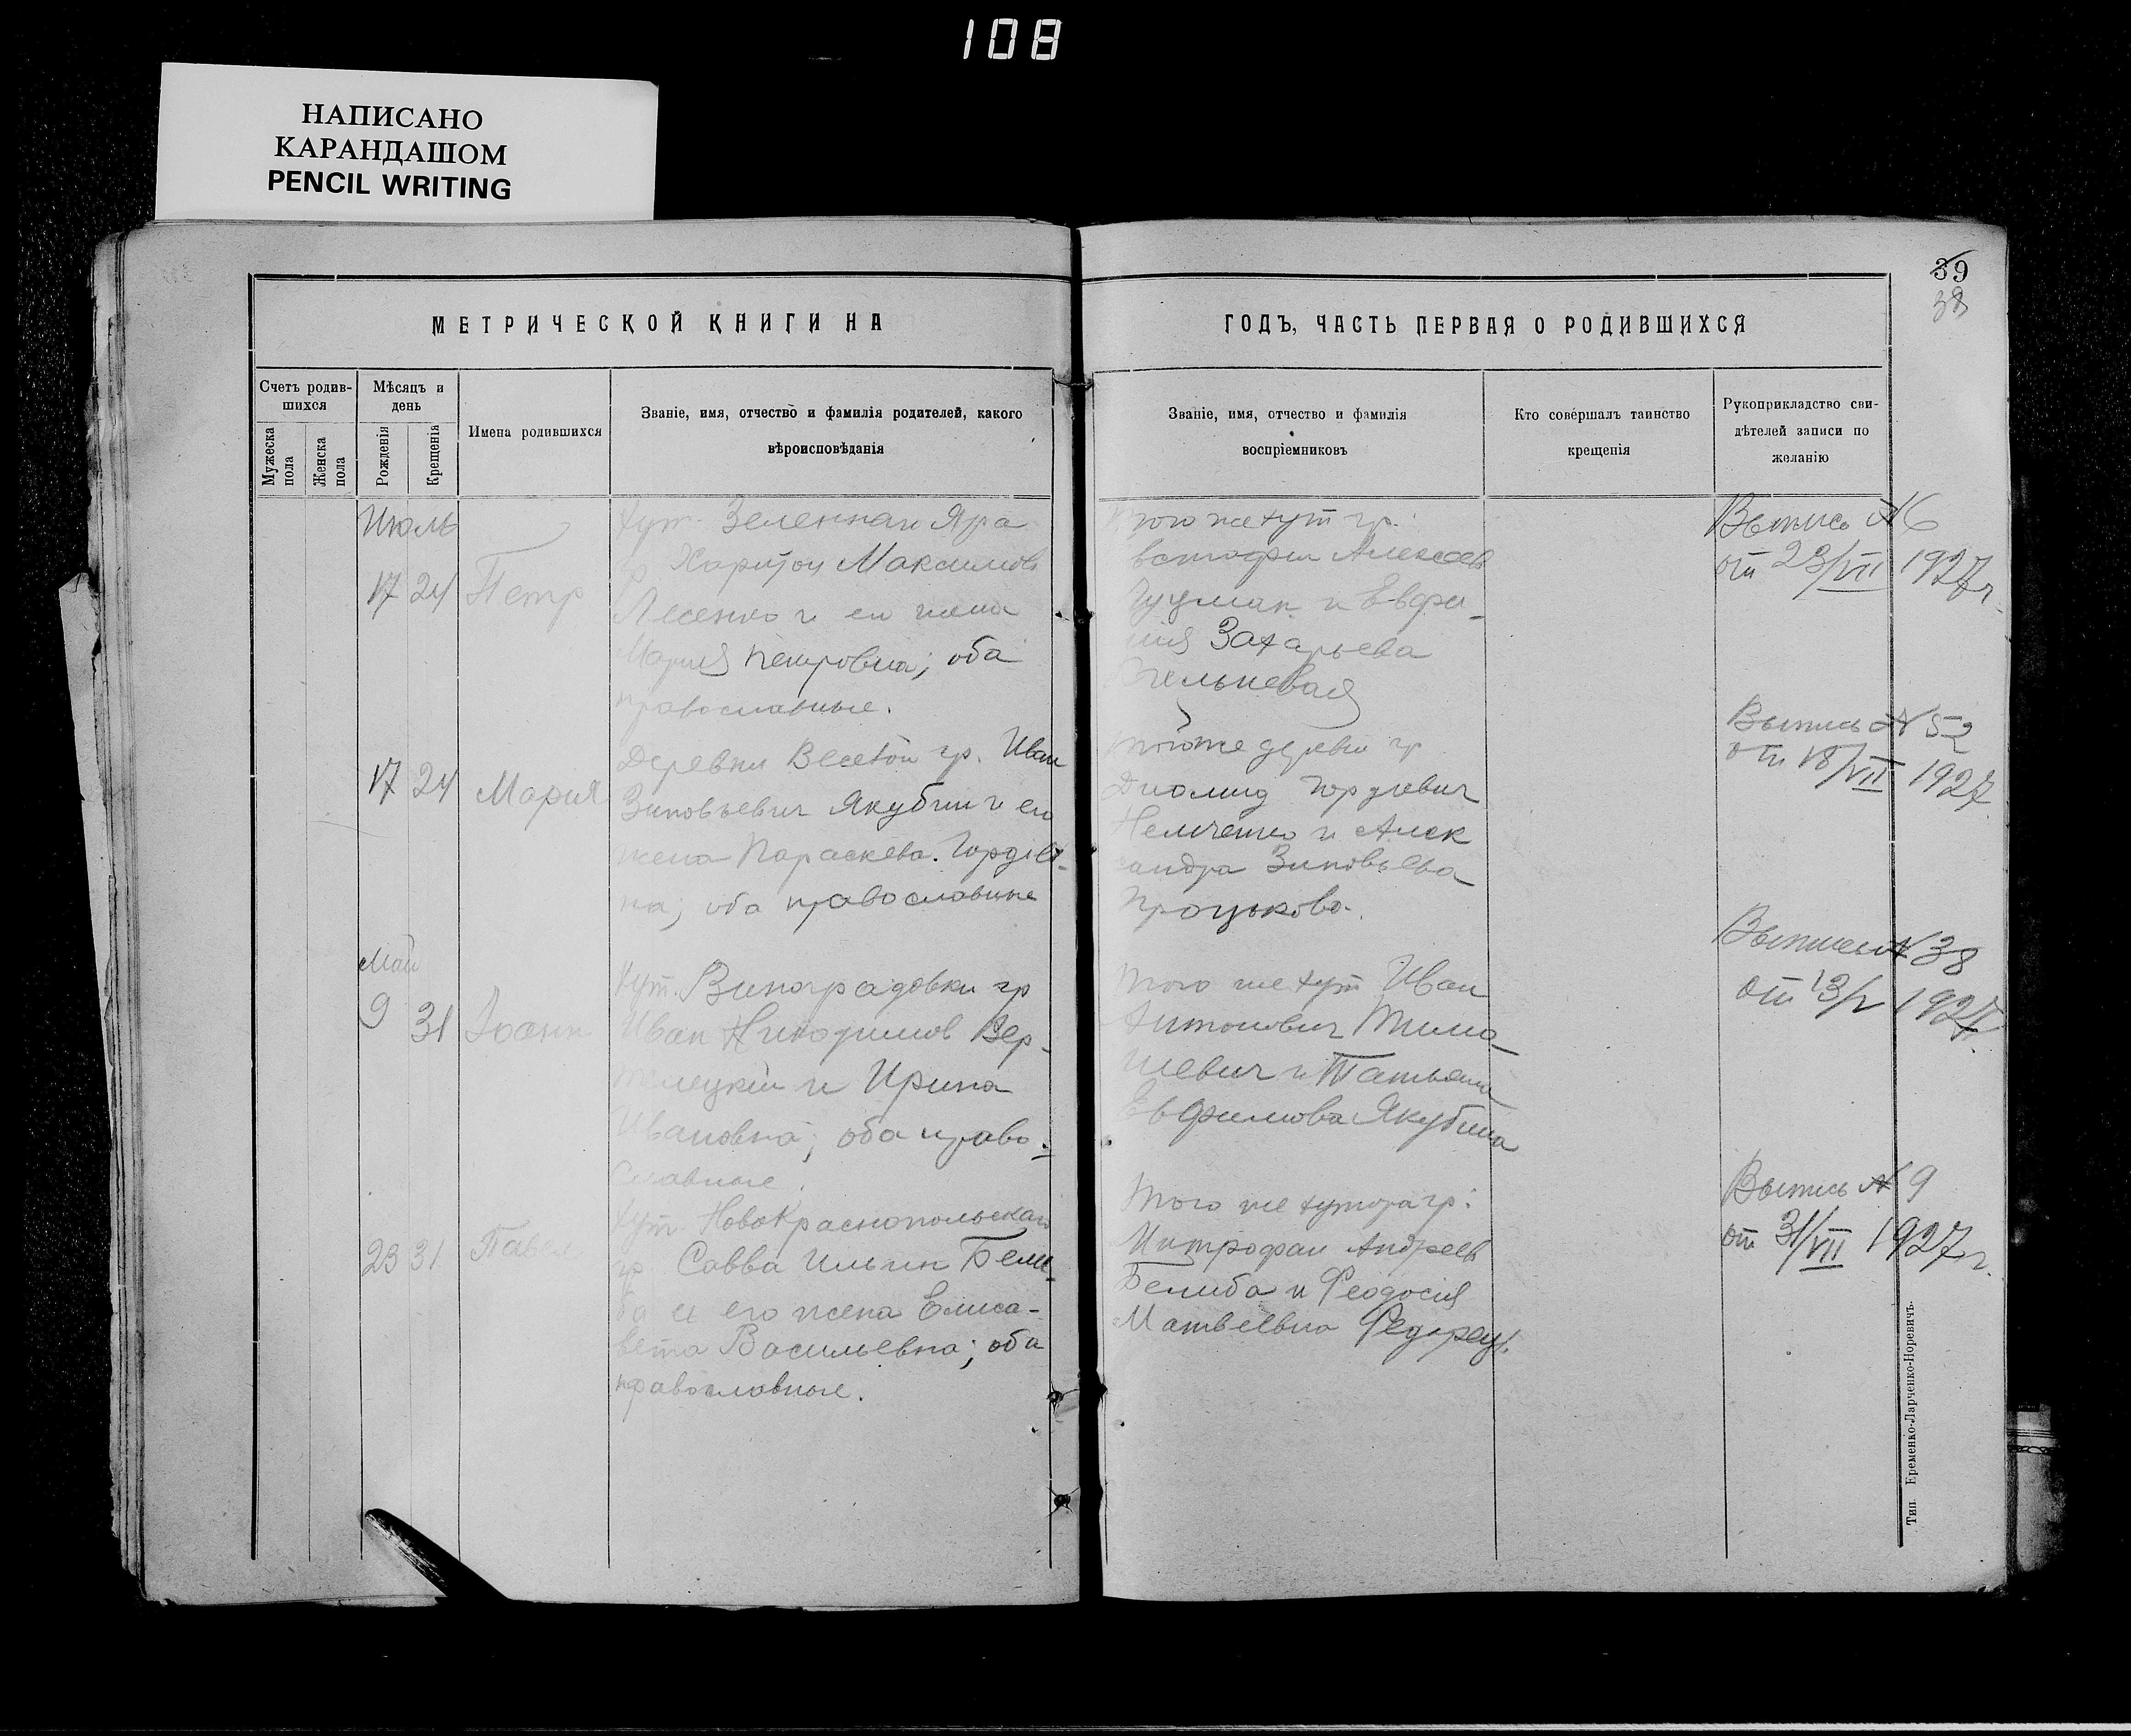 108
НАПИСАНО
КАРАНДАШОМ
PENCIL WRITING
39
38
МЕТРИЧЕСКОЙ КНИГИ НА
ГОДЪ, ЧАСТЬ ПЕРВАЯ О РОДИВШИХСЯ
Счетъ родив-
шихся
Мужеска
пола
Женска
пола
Мѣсяцъ и
день
Рожденія
Крещенія
Имена родившихся
Званіе, имя, отчество и фамилія родителей, какого
вѣроисповѣданія
Званіе, имя, отчество и фамилія
воспріемниковъ
Кто совершалъ таинство
крещенія
Рукоприкладство сви-
дѣтелей записи по
желанію
Июль
17 24 Петр
хут. Зеленнаго Яра
гр Харитон Максимов
Лесенко и его жена
Мария Петровна; оба
православные.
того же хут гр.
Алексеев
и Евфи-
мия Захарьева
Выпись № 6
от 23/VII 1927 г.
17 24 Мария
Деревни Веселой гр. Иван
Зиновьевич Якубин и его
жена Параскева Гордѣев-
на; оба православные
тойже деревни гр
Диомид Гордѣевич
Немченко и Алек
сандра Зиновьева
Процькова.
Выпись № 52
от 18/VII 1927
Май
9 31 Іоанн
хут. Виноградовки гр
Иван Никодимов Вер-
и Ирина
Ивановна; оба право-
славные.
того же хут Иван
Антонович Тима-
шевич и Татьяна
Евфимова Якубина
Выпись № 38
от 13/V 1927.
23 31 Павел
хут. Новокраснопольскаго
гр. Савва Ильин Бели-
ба и его жена Елиса-
вета Васильевна; оба
православные.
того же хутора гр.
Митрофан Андреев
Белиба и Феодосия
Матвеевна
Выпись № 9
от 31/VII 1927 г.
Тип. Еременко-Ларченко-Норевичъ.